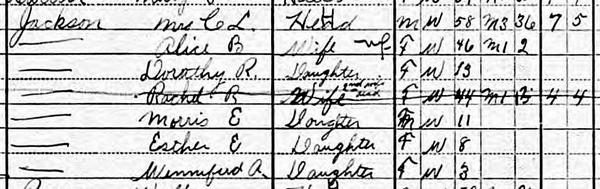 Jackson Mrs C. L. Head M W 58 M3 36 7 5
— Alice B Wife F W 46 M1 2
— Dorothy R. Daughter F W 13
— Rachel R Wife dead F W 44 M1 4 4
— Morris E Daughter F W 11
— Esther E Daughter F W 8
— Winnifred A. Daughter F W 3